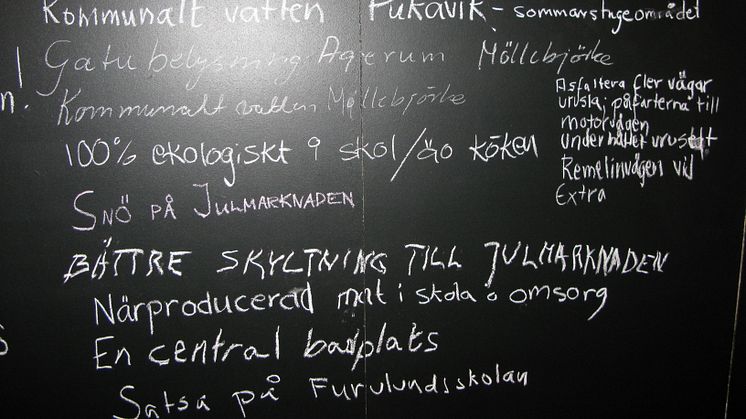 Kommunalt vatten Pukavik - sommarstugeområdet
Gatubelysning Agerum Möllebjörke
n!
Kommunalt vatten Möllebjörke
Asfaltera fler vägar
påfarterna till
motorvägen
Underhållet
Remelinvägen vid
Extra
100% ekologiskt i skol/äo köken
SNÖ PÅ JULMARKNADEN
BÄTTRE SKYLTNING TILL JULMARKNADEN
Närproducerad mat i skola o omsorg
En central badplats
Satsa på Furulundsskolan